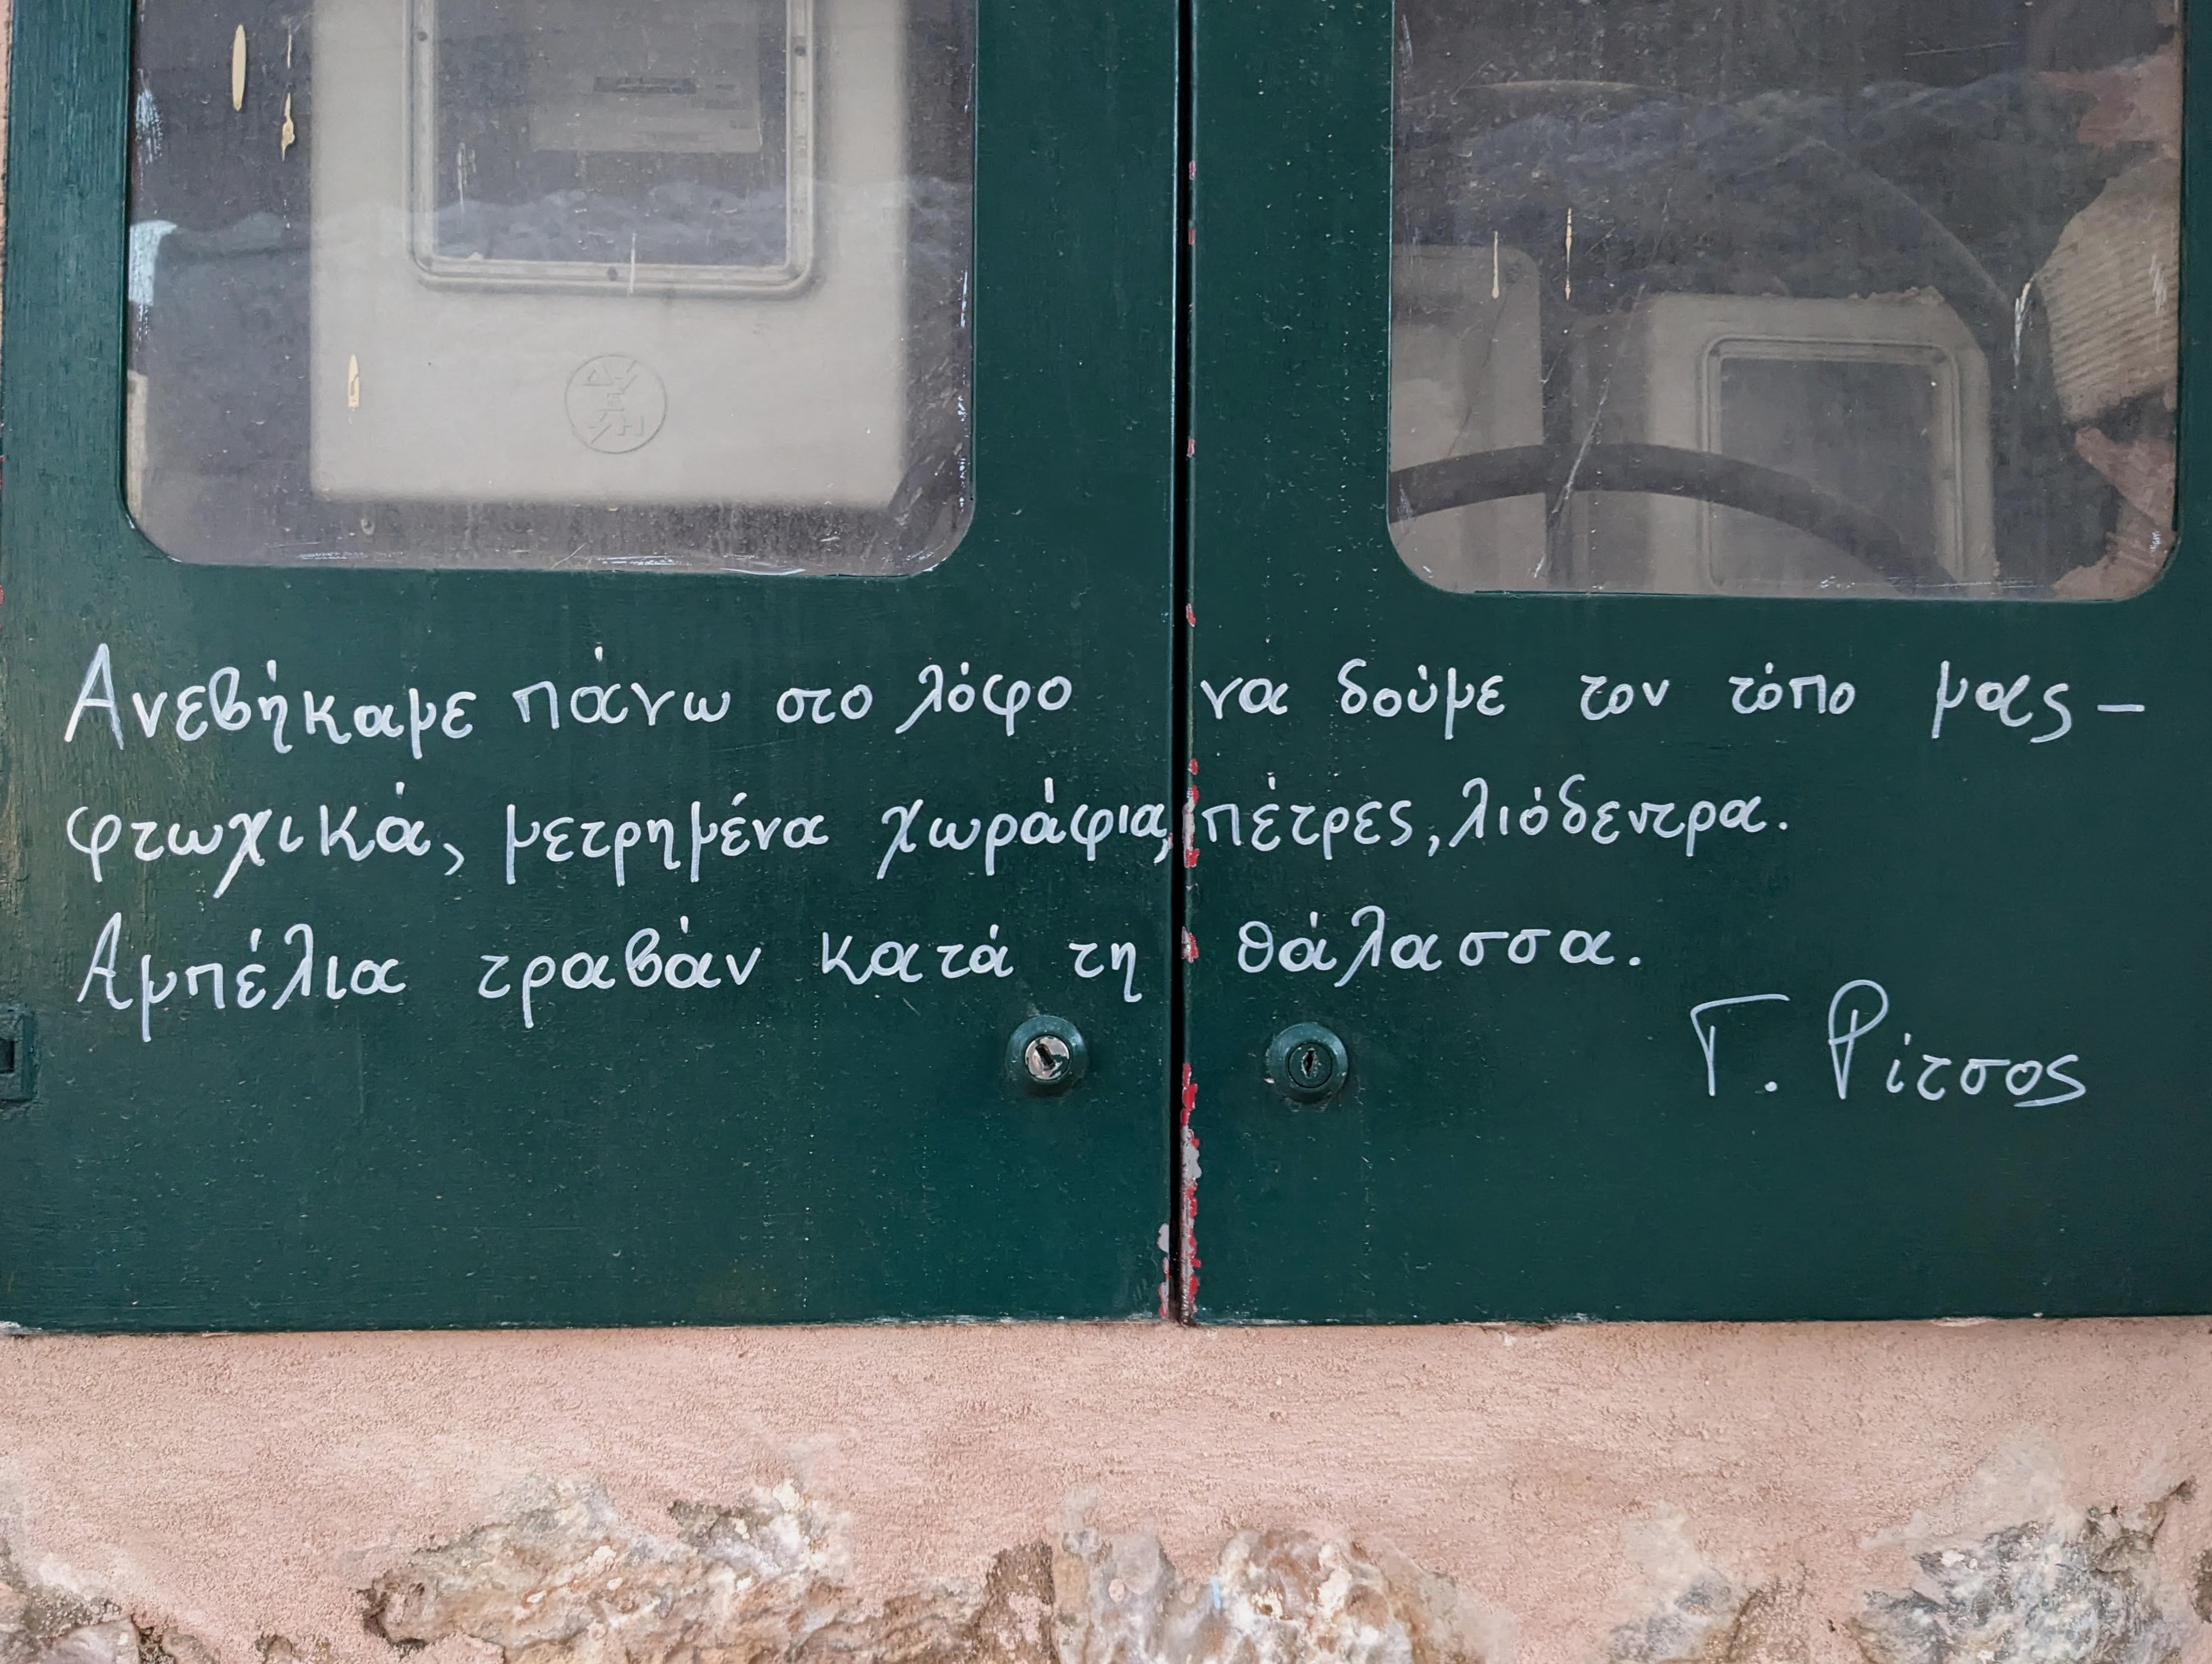 Ανεβήκαμε πάνω στο λόφο να δούμε τον τόπο μας –
φτωχικά, μετρημένα χωράφια, πέτρες, λιόδεντρα.
Αμπέλια τραβάν κατά τη θάλασσα.
Γ. Ρίτσος